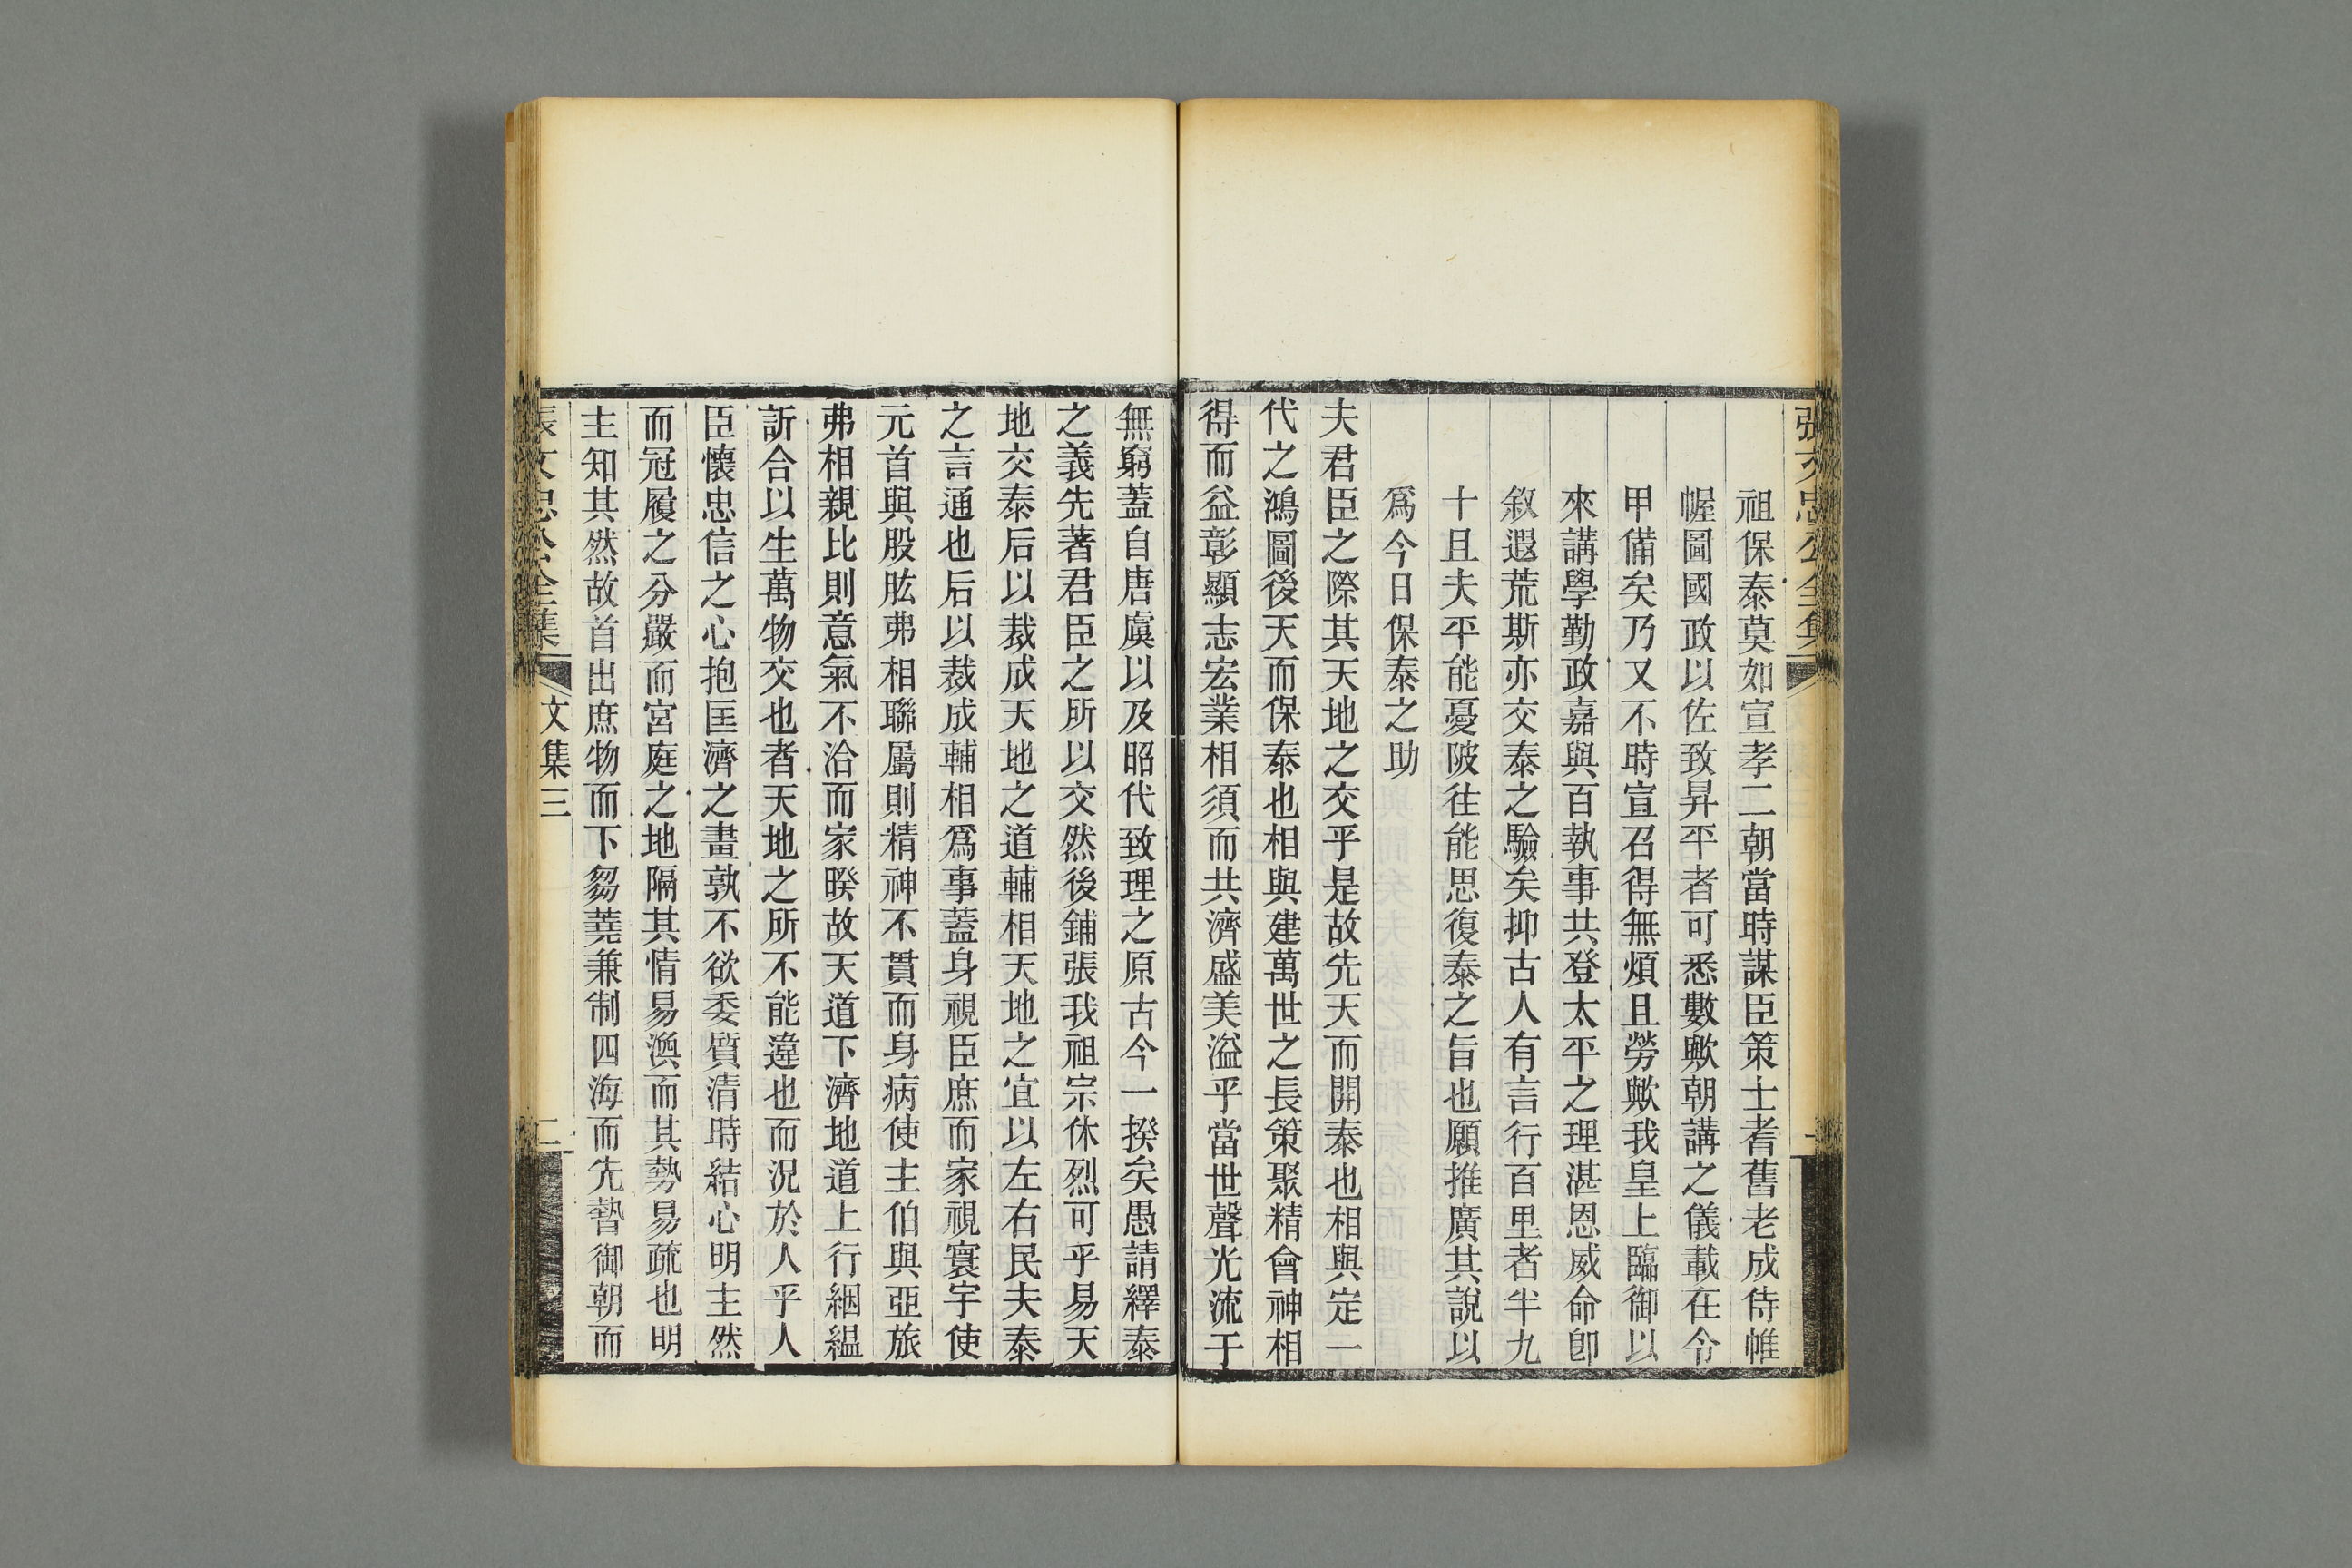 張文忠公全集
祖保泰莫如宣孝二朝當時謀臣策士耆舊老成侍帷
幄圖國政以佐致昇平者可悉數歟朝講之儀載在令
甲備矣乃又不時宣召得無煩且勞歟我皇上臨御以
來講學勤政嘉與百執事共登太平之理湛恩威命卽
敘遐荒斯亦交泰之驗矣抑古人有言行百里者半九
十且夫平能憂陂往能思復泰之旨也願推廣其說以
爲今日保泰之助
夫君臣之際其天地之交乎是故先天而開泰也相與定一
代之鴻圖後天而保泰也相與建萬世之長策聚精會神相
得而益彰顯志宏業相須而共濟盛美溢乎當世聲光流于
無窮蓋自唐虞以及昭代致理之原古今一揆矣愚請繹泰
之義先著君臣之所以交然後鋪張我祖宗休烈可乎易天
地交泰后以裁成天地之道輔相天地之宜以左右民夫泰
之言通也后以裁成輔相爲事蓋身視臣庶而家視寰宇使
元首與股肱弗相聯屬則精神不貫而身病使主伯與亞旅
弗相親比則意氣不洽而家暌故天道下濟地道上行絪縕
訢合以生萬物交也者天地之所不能違也而況於人乎人
臣懷忠信之心抱匡濟之畫孰不欲委質清時結心明主然
而冠履之分嚴而宮庭之地隔其情易渙而其勢易疏也明
主知其然故首出庶物而下芻蕘兼制四海而先暬御朝而
張文忠公全集
文集三
二